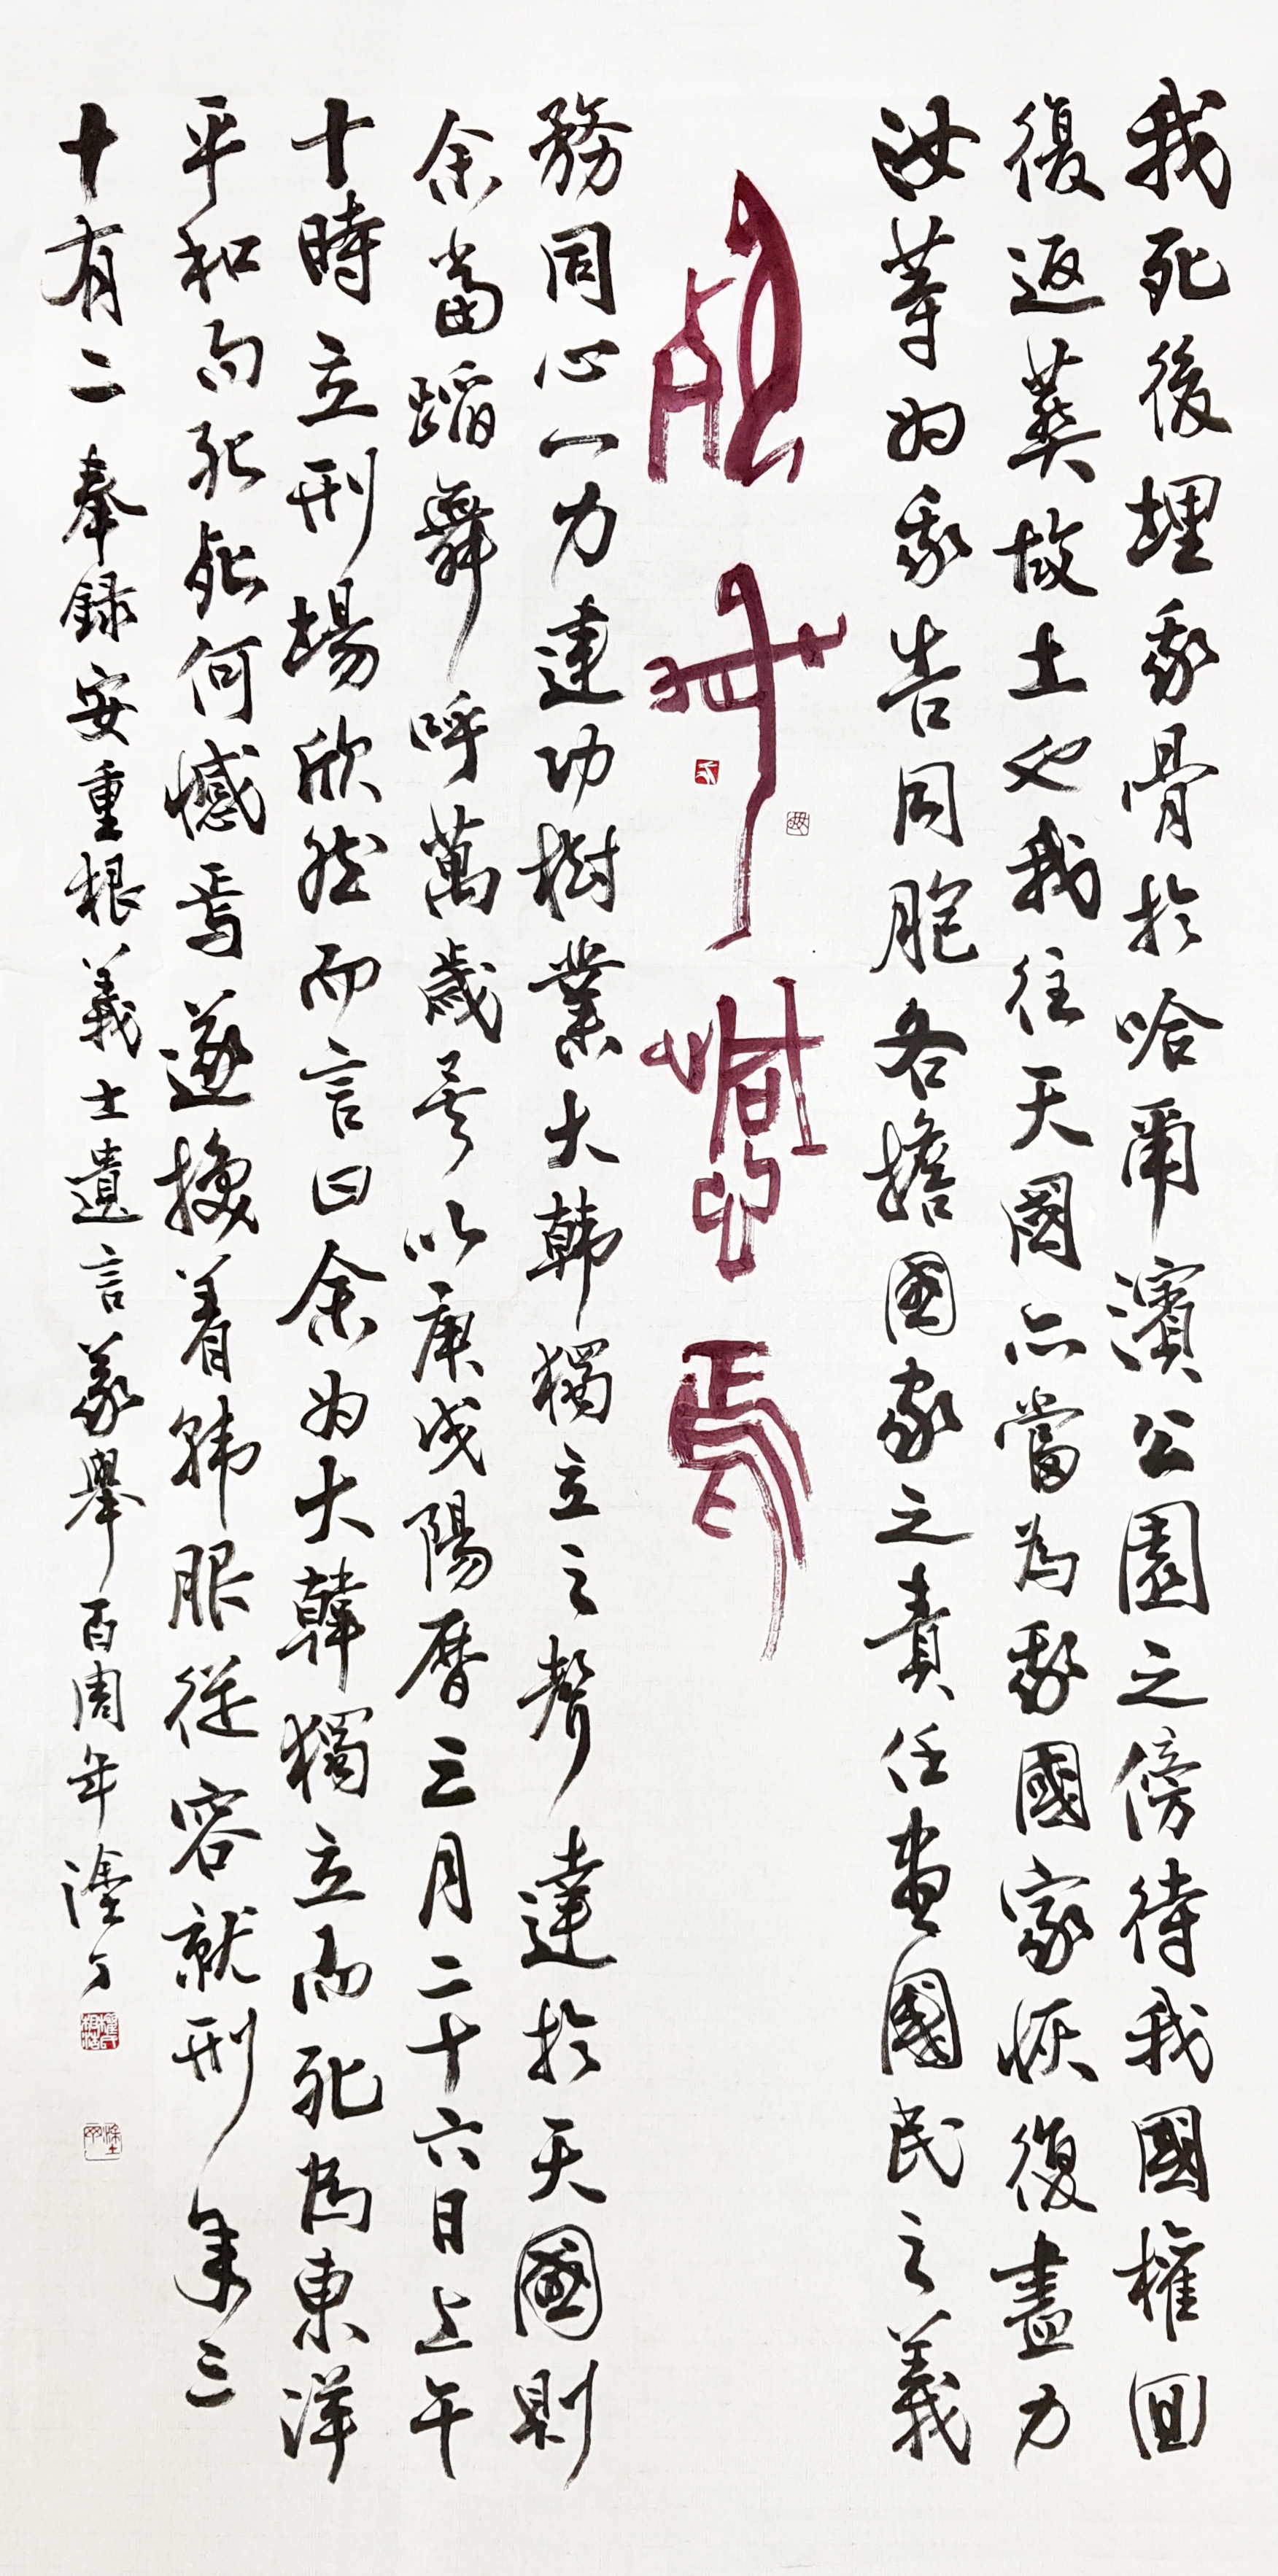 我死後埋我骨於哈爾濱公園之傍待我國權回
復返葬故土也我往天國亦當為我國家恢復盡力
汝等為我告同胞各擔國家之責任盡國民之義
死何憾焉
務同心一力建功樹業大韓獨立之聲達於天國則
余當蹈舞呼萬歲矣以庚戌陽曆三月二十六日上午
十時立刑場欣然而言曰余為大韓獨立而死為東洋
平和而死死何憾焉遂換着韓服從容就刑年三
十有二 奉録安重根義士遺言義舉百周年塗丁